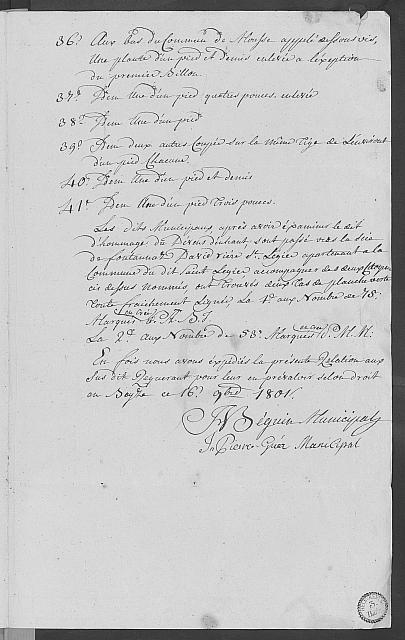 36° Aux bas du Commun de Mousse appelé dessous vis,
Une plante d'un pied et demis enlevée a l'exeption
du premier Billon.
37° Idem Une d'un pied quatres pouces, enlevée
38° Idem Une d'un pied
39° Idem deux autres Coupée sur la même tige de L'environt
d'un pied Chacune.
40° Idem Une d'un pied et demis
41° Idem Une d'un pied trois pouces.
Les dits Municipaux après avoir éxaminée le dit
d'homage du dévant sont passé vers la scie
de fontanna David rière St. Legier apartenant a la
Commune du dit Saint Legier accompagner des deux Citoyens
cis dessous nommés ont trouvés deux tas de planche verte
toute fraichement Ligniée, La 1e aux Nombre de 75.
Marques
La 2de aux Nombre de 58. Marques
En fois nous avons éxpédiés la présente Relation aux
sus dit Requerant pour leur en prévaloir selon droit
ce 16e 9bre 1801.
Béguin Municipal
Pierre Municipal